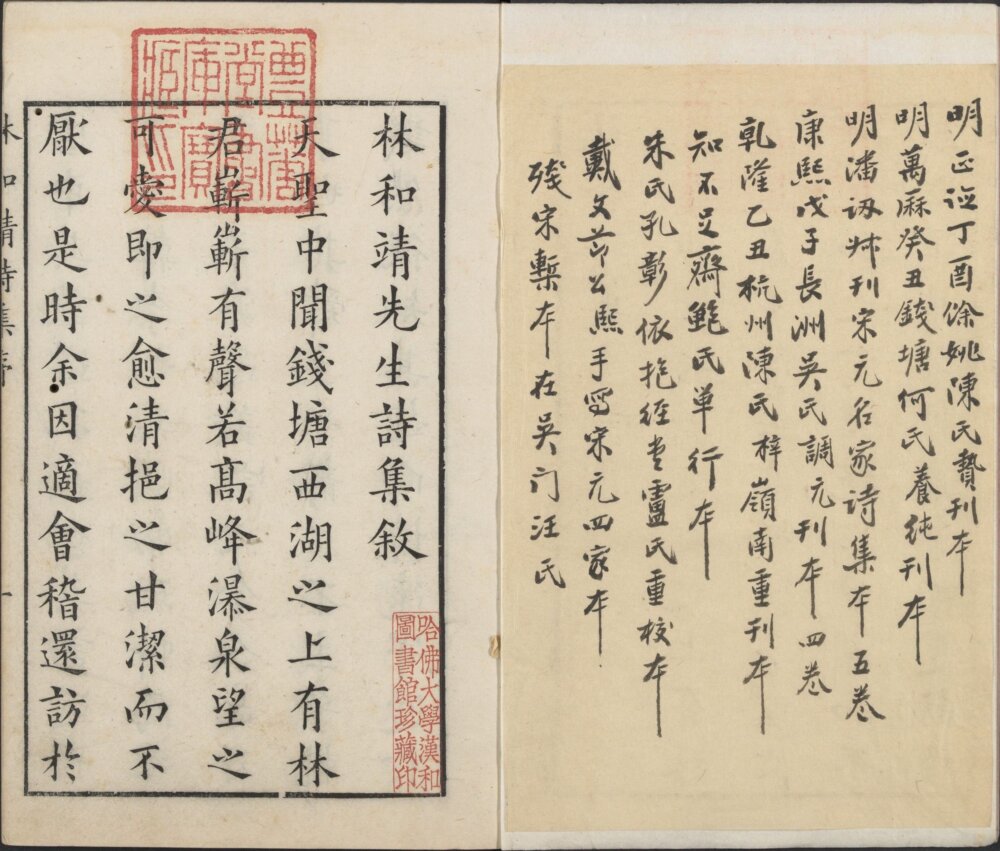 明正德丁酉餘姚陳氏贄刊本
明萬厤癸丑錢塘何氏養純刊本
明潘訒叔刊宋元名家诗集本五卷
康熙戊子長洲吳氏調元刊本四卷
乾隆乙丑杭州陳氏梓嶺南重刊本
知不足齋鮑氏單行本
朱氏孔彰依抱經堂盧氏重校本
戴文节公熙手寫宋元四家本
殘宋槧本在吴门汪氏
林和靖先生詩集敘
天聖中聞錢塘西湖之上有林
君嶄嶄有聲若高峰瀑泉望之
可愛即之愈清挹之甘潔而不
厭也是時余因適會稽還訪於
林和靖詩集序
一
豐華
堂書
庫寶
藏印
哈佛大學漢和
圖書館珍藏印